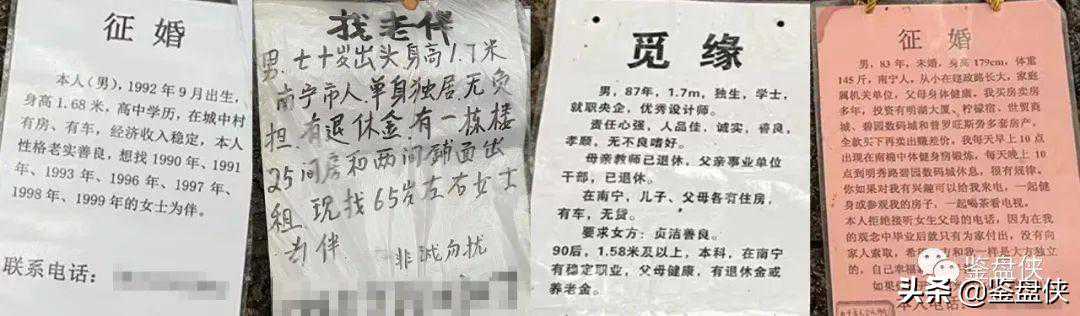 征 婚
本人(男),1992年9月出生,
身高1.68米,高中学历,在城中村
有房、有车,经济收入稳定,本人
性格老实善良,想找1990年、1991
年、1993年、1996年、1997年、
1998年、1999年的女士为伴。
联系电话:
找老伴
男.七十岁出头身高1.7米
南宁市人.单身独居.无负
担 有退休金.有一栋楼
25间房和两间铺面出
租 现找65岁左右女士
为伴 非诚勿扰
觅 缘
男,87年,1.7m,独生,学士,
就职央企,优秀设计师。
责任心强,人品佳,诚实,善良,
孝顺,无不良嗜好。
母亲教师已退休,父亲事业单位
干部,已退休。
在南宁,儿子、父母各有住房,
有车,无贷。
要求女方:贞洁善良。
90后,1.58米及以上,本科,在南宁
有稳定职业,父母健康,有退休金或
养老金。
征 婚
男,83年,未婚,身高179cm,体重
145斤,南宁人,从小在建政路长大,家庭
属机关单位,父母身体健康。我买房卖房
多年,投资有明湖大厦、柠檬宿、世贸商
城、碧园数码城和普罗旺斯旁多套房产,
全款买下再卖出赚差价。我每天早上10点
出现在南棉中体健身房锻炼,每天晚上10
点到明秀路碧园数码城休息,很有规律。
你如果对我有兴趣可以给我来电,一起健
身或参观我的房子,一起喝茶看电视。
本人拒绝接听女生父母的电话,因为在我
的观念中毕业后就只有为家付出,没有向
家人索取,希 和我一样是大方独立
的,自己幸福
如果
本人电话:
鉴盘侠
头条 @鉴盘侠